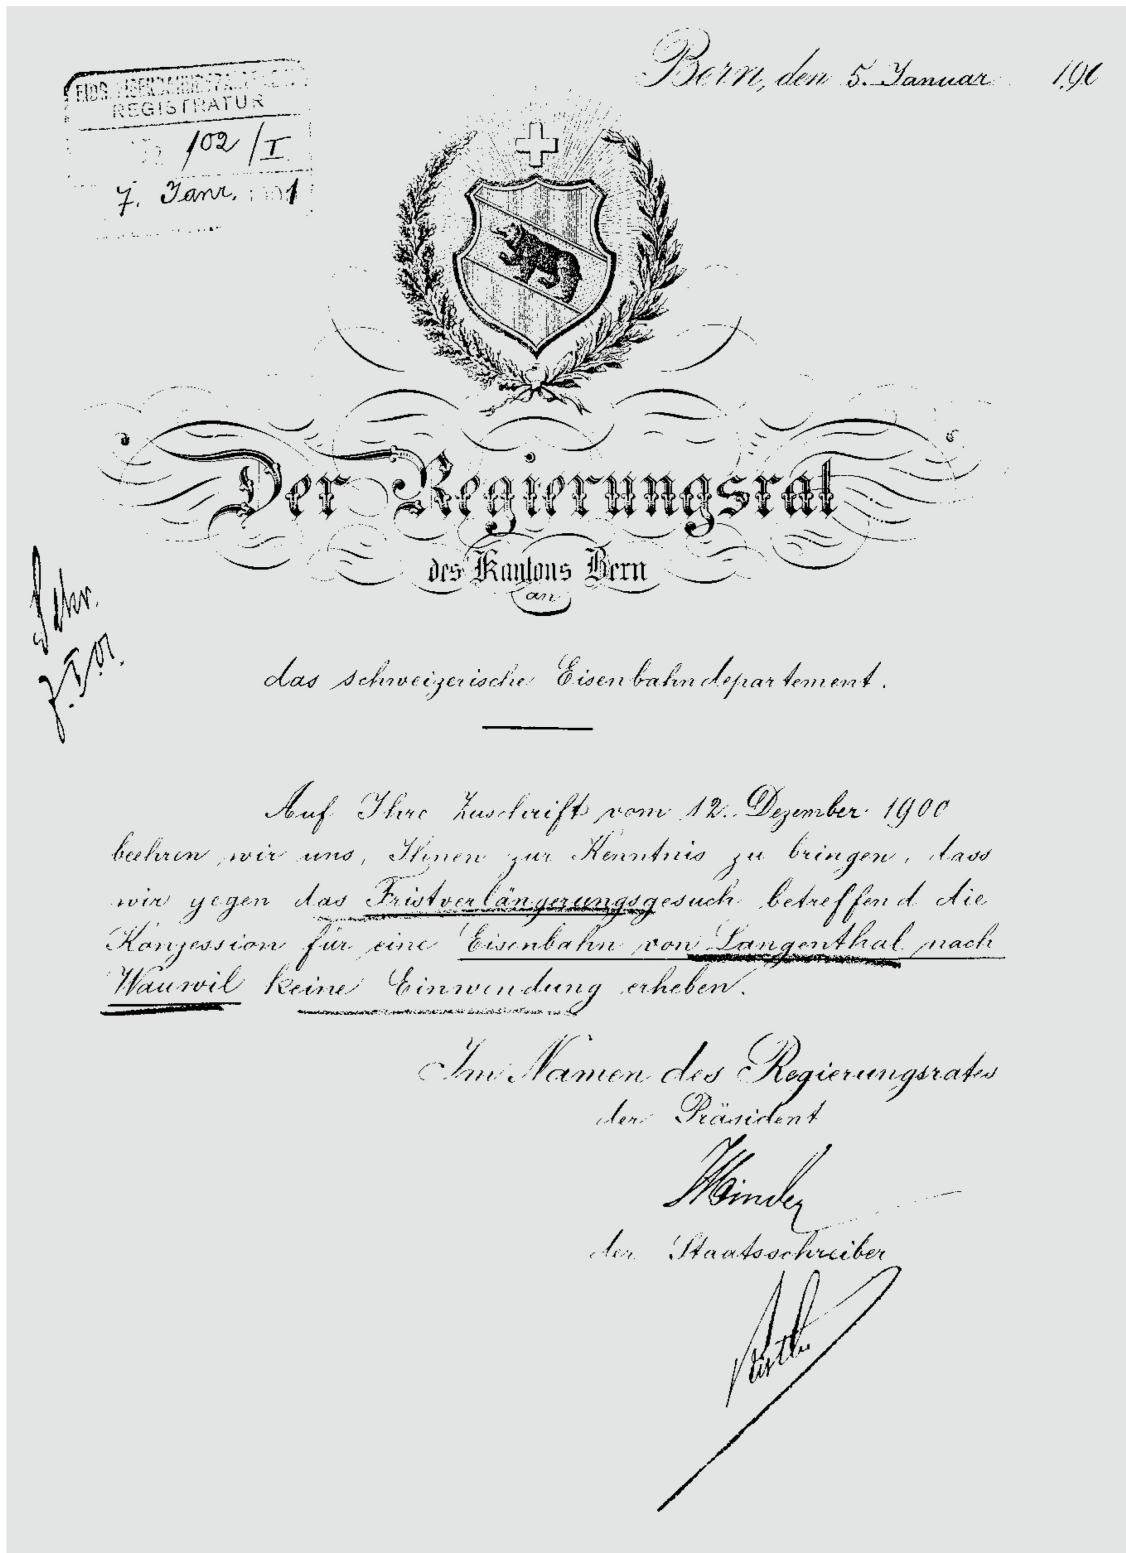 Bern, den 5. Januar 190
EIDG. EISENBAHNDEPARTEMENT
REGISTRATUR
102/I
7. Janr. 1901
Der Regierungsrat
des Kantons Bern
an
7.I.01.
das schweizerische Eisenbahndepartement.
Auf Ihre Zuschrift vom 12. Dezember 1900
beehren wir uns, Ihnen zur Kenntnis zu bringen, dass
wir gegen das Fristverlängerungsgesuch betreffend die
Konzession für eine Eisenbahn von Langenthal nach
Wauwil keine Einwendung erheben.
Im Namen des Regierungsrates
der Präsident
Minder
der Staatsschreiber